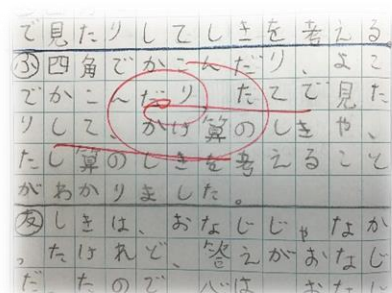 で見たりしてしきを考える。
ふ四角でかこんだり、よこ
でかこんだり、たてで見た
りして、かけ算のしきや、
たし算のしきを考えること
がわかりました。
友しきは、おなじじゃなか
。たけれど、答えがおなじ
だ。たので